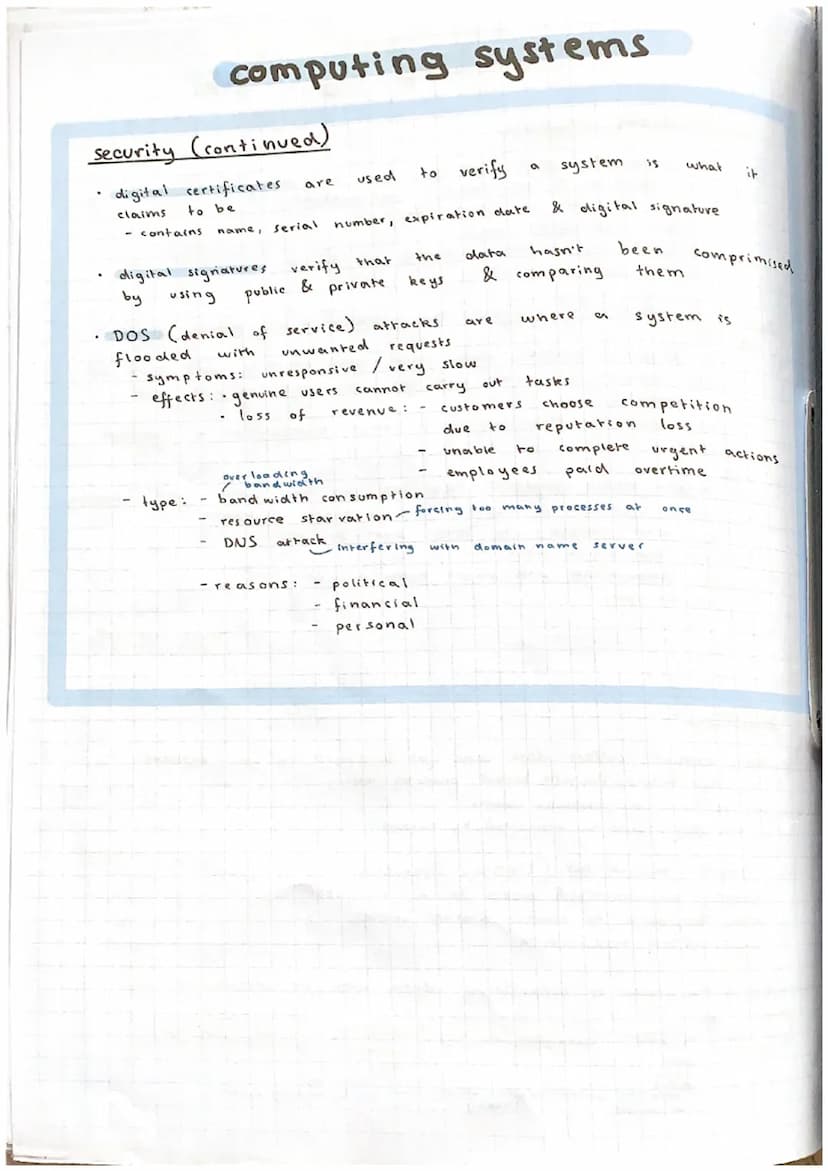 computing systems
security (continued)
· digital certificates are used to verify a system is what it
claims to be
- contains name, serial number, expiration date & digital signature
· digital signatures verify that the data hasn't been comprimised
by using public & private keys & comparing them
· DOS (denial of service) attacks are where a system is
flooded with unwanted requests
- symptoms: unresponsive / very slow
- effects: · genuine users cannot carry out tasks
· loss of revenue: - customers choose competition
due to reputation loss
- unable to complete urgent actions
- employees paid overtime
overloading
bandwidth
- type: - bandwidth consumption
- resource starvation - forcing too many processes at once
- DNS attack interfering with domain name server
- reasons: - political
- financial
- personal